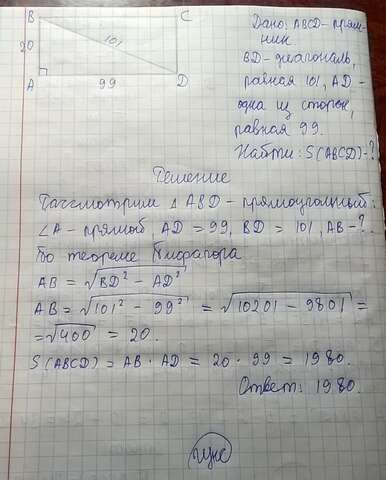 B C
Дано: ABCD - прям-
ник
BD - диагональ,
равная 101, AD -
одна из сторон,
равная 99.
Найти: S(ABCD) - ?
20 101
A 99 D
Решение
Рассмотрим △ ABD - прямоугольный:
∠A - прямой, AD = 99, BD = 101, AB - ?
По теореме Пифагора
AB = √BD² - AD²
AB = √101² - 99² = √10201 - 9801 =
= √400 = 20.
S(ABCD) = AB · AD = 20 · 99 = 1980.
Ответ: 1980.